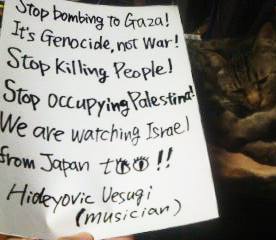 Stop bombing to Gaza!
It's Genocide, not War!
Stop Killing People!
Stop occupying Palestina!
We are watching Israel
from Japan too!!
Hideyovic Uesugi
(musician)